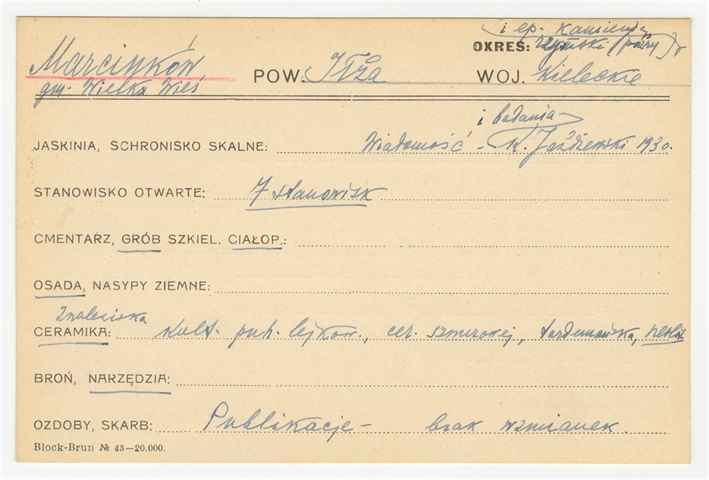 i ep. kamienna
Marcinków POW. Iłża OKRES: rzymski (późny)
gm. Wielka Wieś WOJ. Kieleckie
i badania
JASKINIA, SCHRONISKO SKALNE: Wiadomość - K. Jażdżewski 1930.
STANOWISKO OTWARTE: 7 stanowisk
CMENTARZ, GRÓB SZKIEL. CIAŁOP.:
OSADA, NASYPY ZIEMNE:
Znaleziska
CERAMIKA: Kult. puh. lejkow., cer. sznurowej, tardenuaska,
BROŃ, NARZĘDZIA:
OZDOBY, SKARB: Publikacje - brak wzmianek.
Block-Brun № 43-20.000.